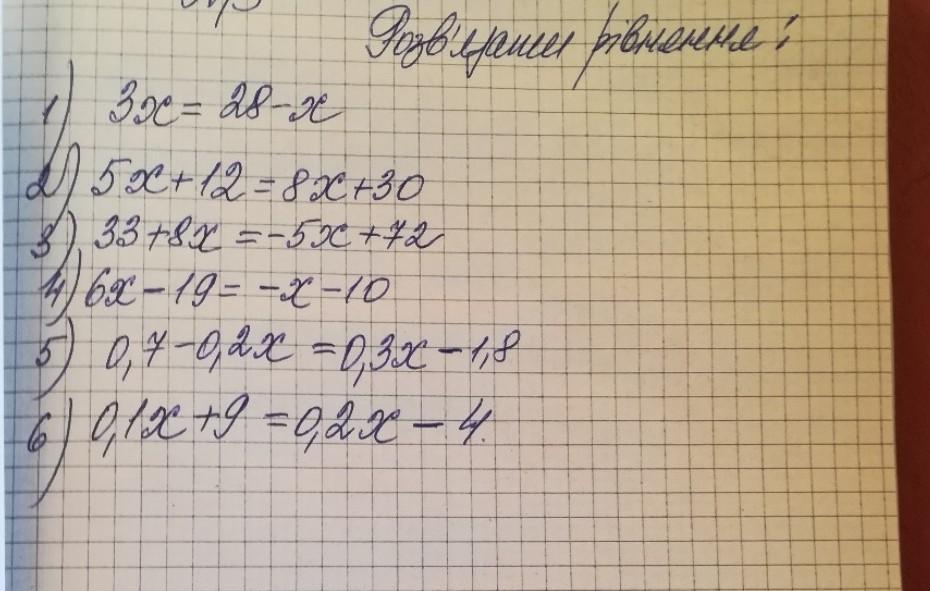 Розв'язати рівняння:
1) 3x = 28 - x
2) 5x + 12 = 8x + 30
3) 33 + 8x = -5x + 72
4) 6x - 19 = -x - 10
5) 0,7 - 0,2x = 0,3x - 1,8
6) 0,1x + 9 = 0,2x - 4.